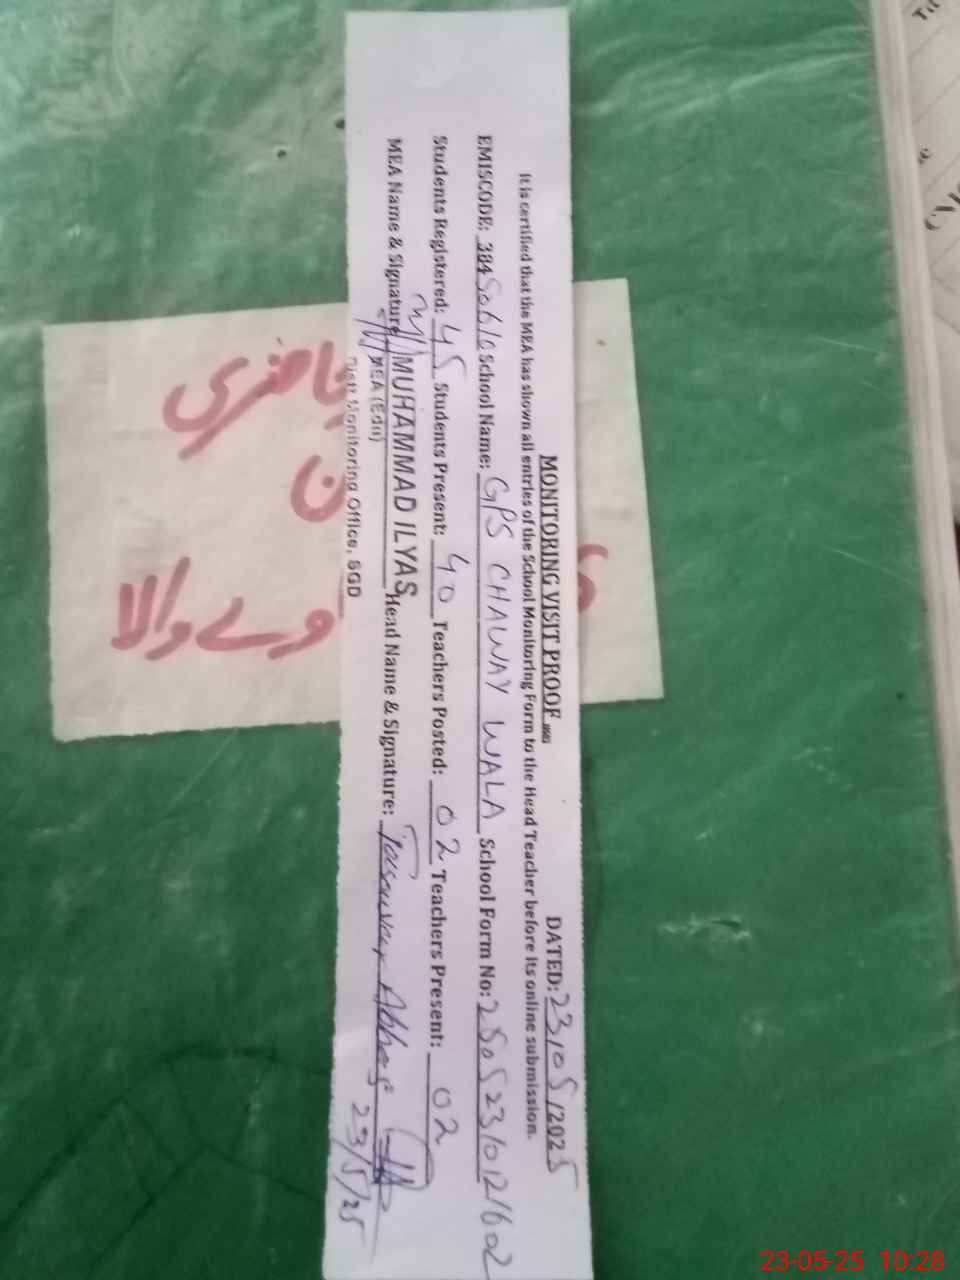 MONITORING VISIT PROOF DATED: 23/05/2025
It is certified that the MEA has shown all entries of the School Monitoring Form to the Head Teacher before its online submission.
EMISCODE: 38450610 School Name: GPS CHAWAY WALA School Form No: 2505231012/602
Students Registered: 45 Students Present: 40 Teachers Posted: 02 Teachers Present: 02
MEA Name & Signature MUHAMMAD ILYAS Head Name & Signature: Tasawar Abbas
MEA (Edu)
Distt Monitoring Office, SGD
23/5/25
حاضری
ن
وے والا
23-05-25 10:28